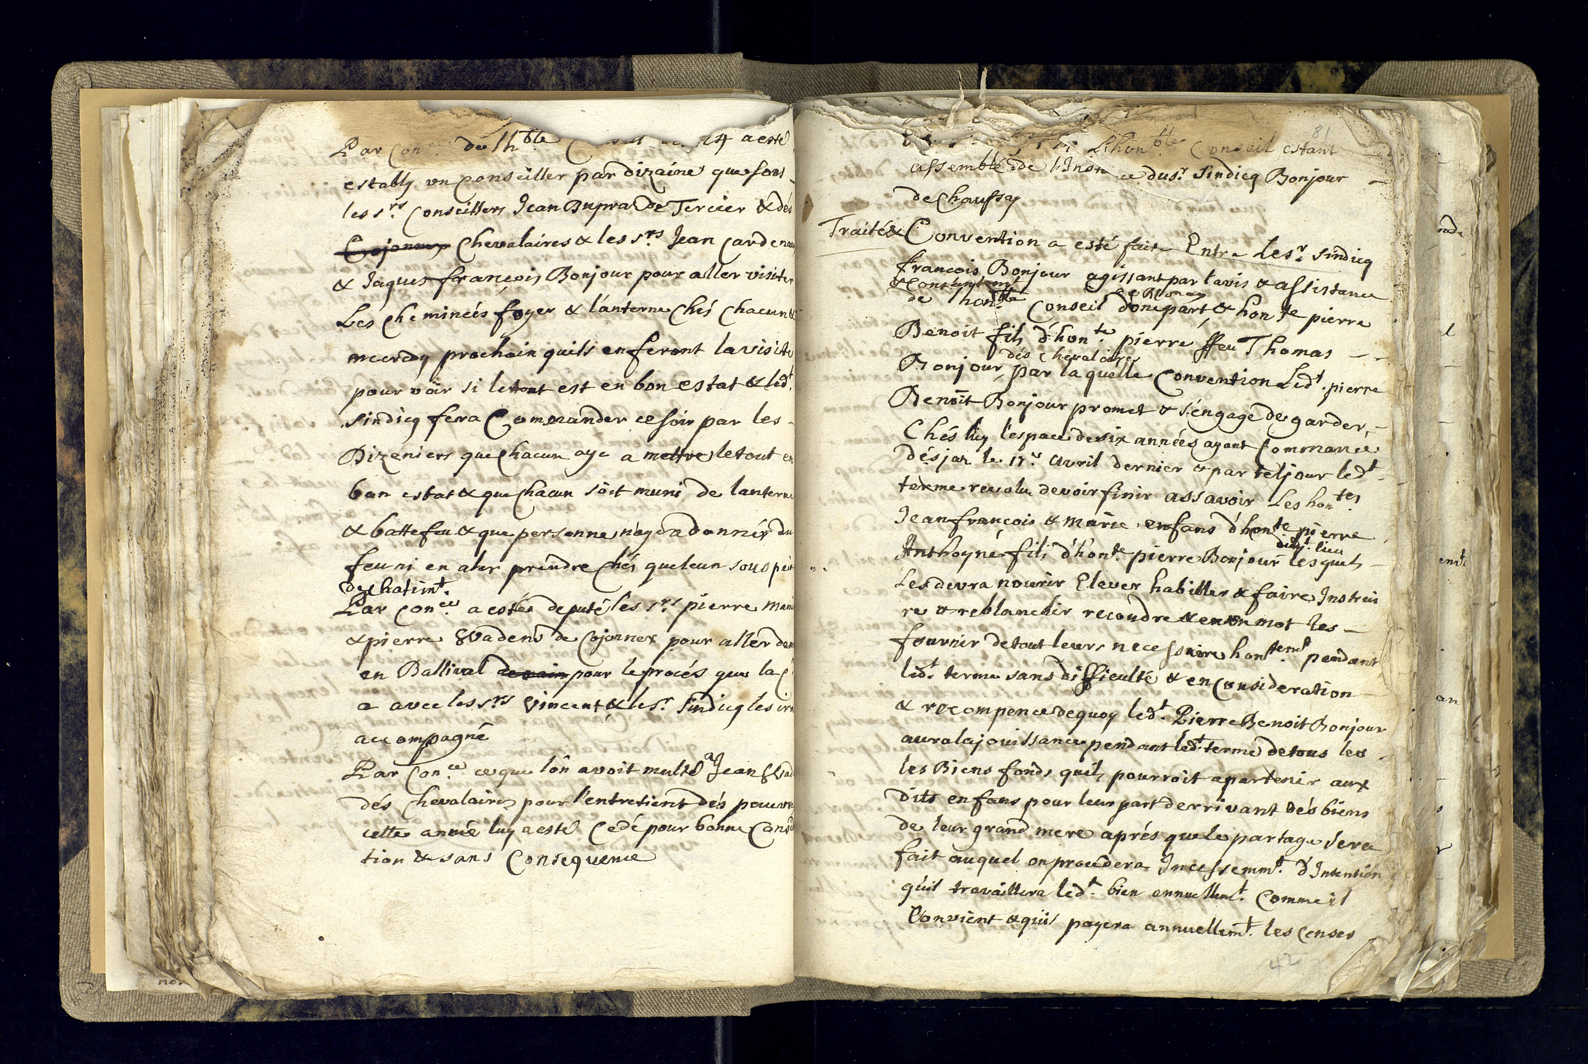 Par Con du lh.ble 24 a esté
establÿ un conseiller par dizaine que sont
les s.rs Conseillers Jean Dupra de Tercier & des
Chevalaires & les s.rs Jean Carden
& Jaques francois Bonjour pour aller visiter
Les Cheminées foyer & lanterne Chés Chacun &
mecredy prochain quils en feront la visite
pour voir si le tout est en bon estat & led.t
sindicq fera Commander ce soir par les
Dizeniers que Chacun aye a mettre le tout en
bon estat & que Chacun soit muni de lanterne
& battefeu & que personne naye a donner du
feu ni en aler prendre Chés quelcun sous pei
de chatim.t
Par Con.ce a esté deputé les s.rs pierre
& pierre de Cojonnex pour aller
en Ballival pour le procés que la
a avec les s.rs Vincent & le s.r Sindicq les ira
accompagné
Par Con.ce ce que lon avoit multé a Jean
dés Chevalaires pour l'entretient dés pauvre
cette année luy a esté Cedé pour bonne
tion & sans Consequence
81
Lhon.ble Conseil estant
assemblé de du s.r Sindicq Bonjour
de Chaussy
Traité & Convention a esté fait Entre le s.r Sindicq
francois Bonjour agissant par l'avis & assistance
de lhon.ble Conseil donepart & hon.te pierre
Benoit fils d'hon.te pierre ffeu Thomas
des Chevalaires
Bonjour par laquelle Convention Led.t pierre
Benoit Bonjour promet & s'engage de garder
Chés luy l'espace de six années ayant Commancé
Désja le 17.e avril dernier & par tel jour led.t
terme revolu devoir finir assavoir Les hon.tes
Jean françois & marie enfans d'hon.te pierre
dud.t lieu
Anthoyne fils d'hon.te pierre Bonjour lesquels
Les devra nourir Elever habiller & faire Instrui
re & reblanchir recoudre & en un mot les
fournir de tout leurs necessaire hon.tem.t pendant
led.t terme sans difficulté & en Consideration
& recompence dequoy led.t Pierre Benoit Bonjour
aura la jouissance pendant led.t terme de tous les
les Biens fonds quil pourroit apartenir aux
Dits enfans pour leur part derrivant dés biens
de leur grand mere aprés que le partage sera
fait auquel on procedera Incessemm.t d'Intention
quil travaillera led.t bien annuellem.t Comme il
Convient & quil payera annuellem.t les censes
42